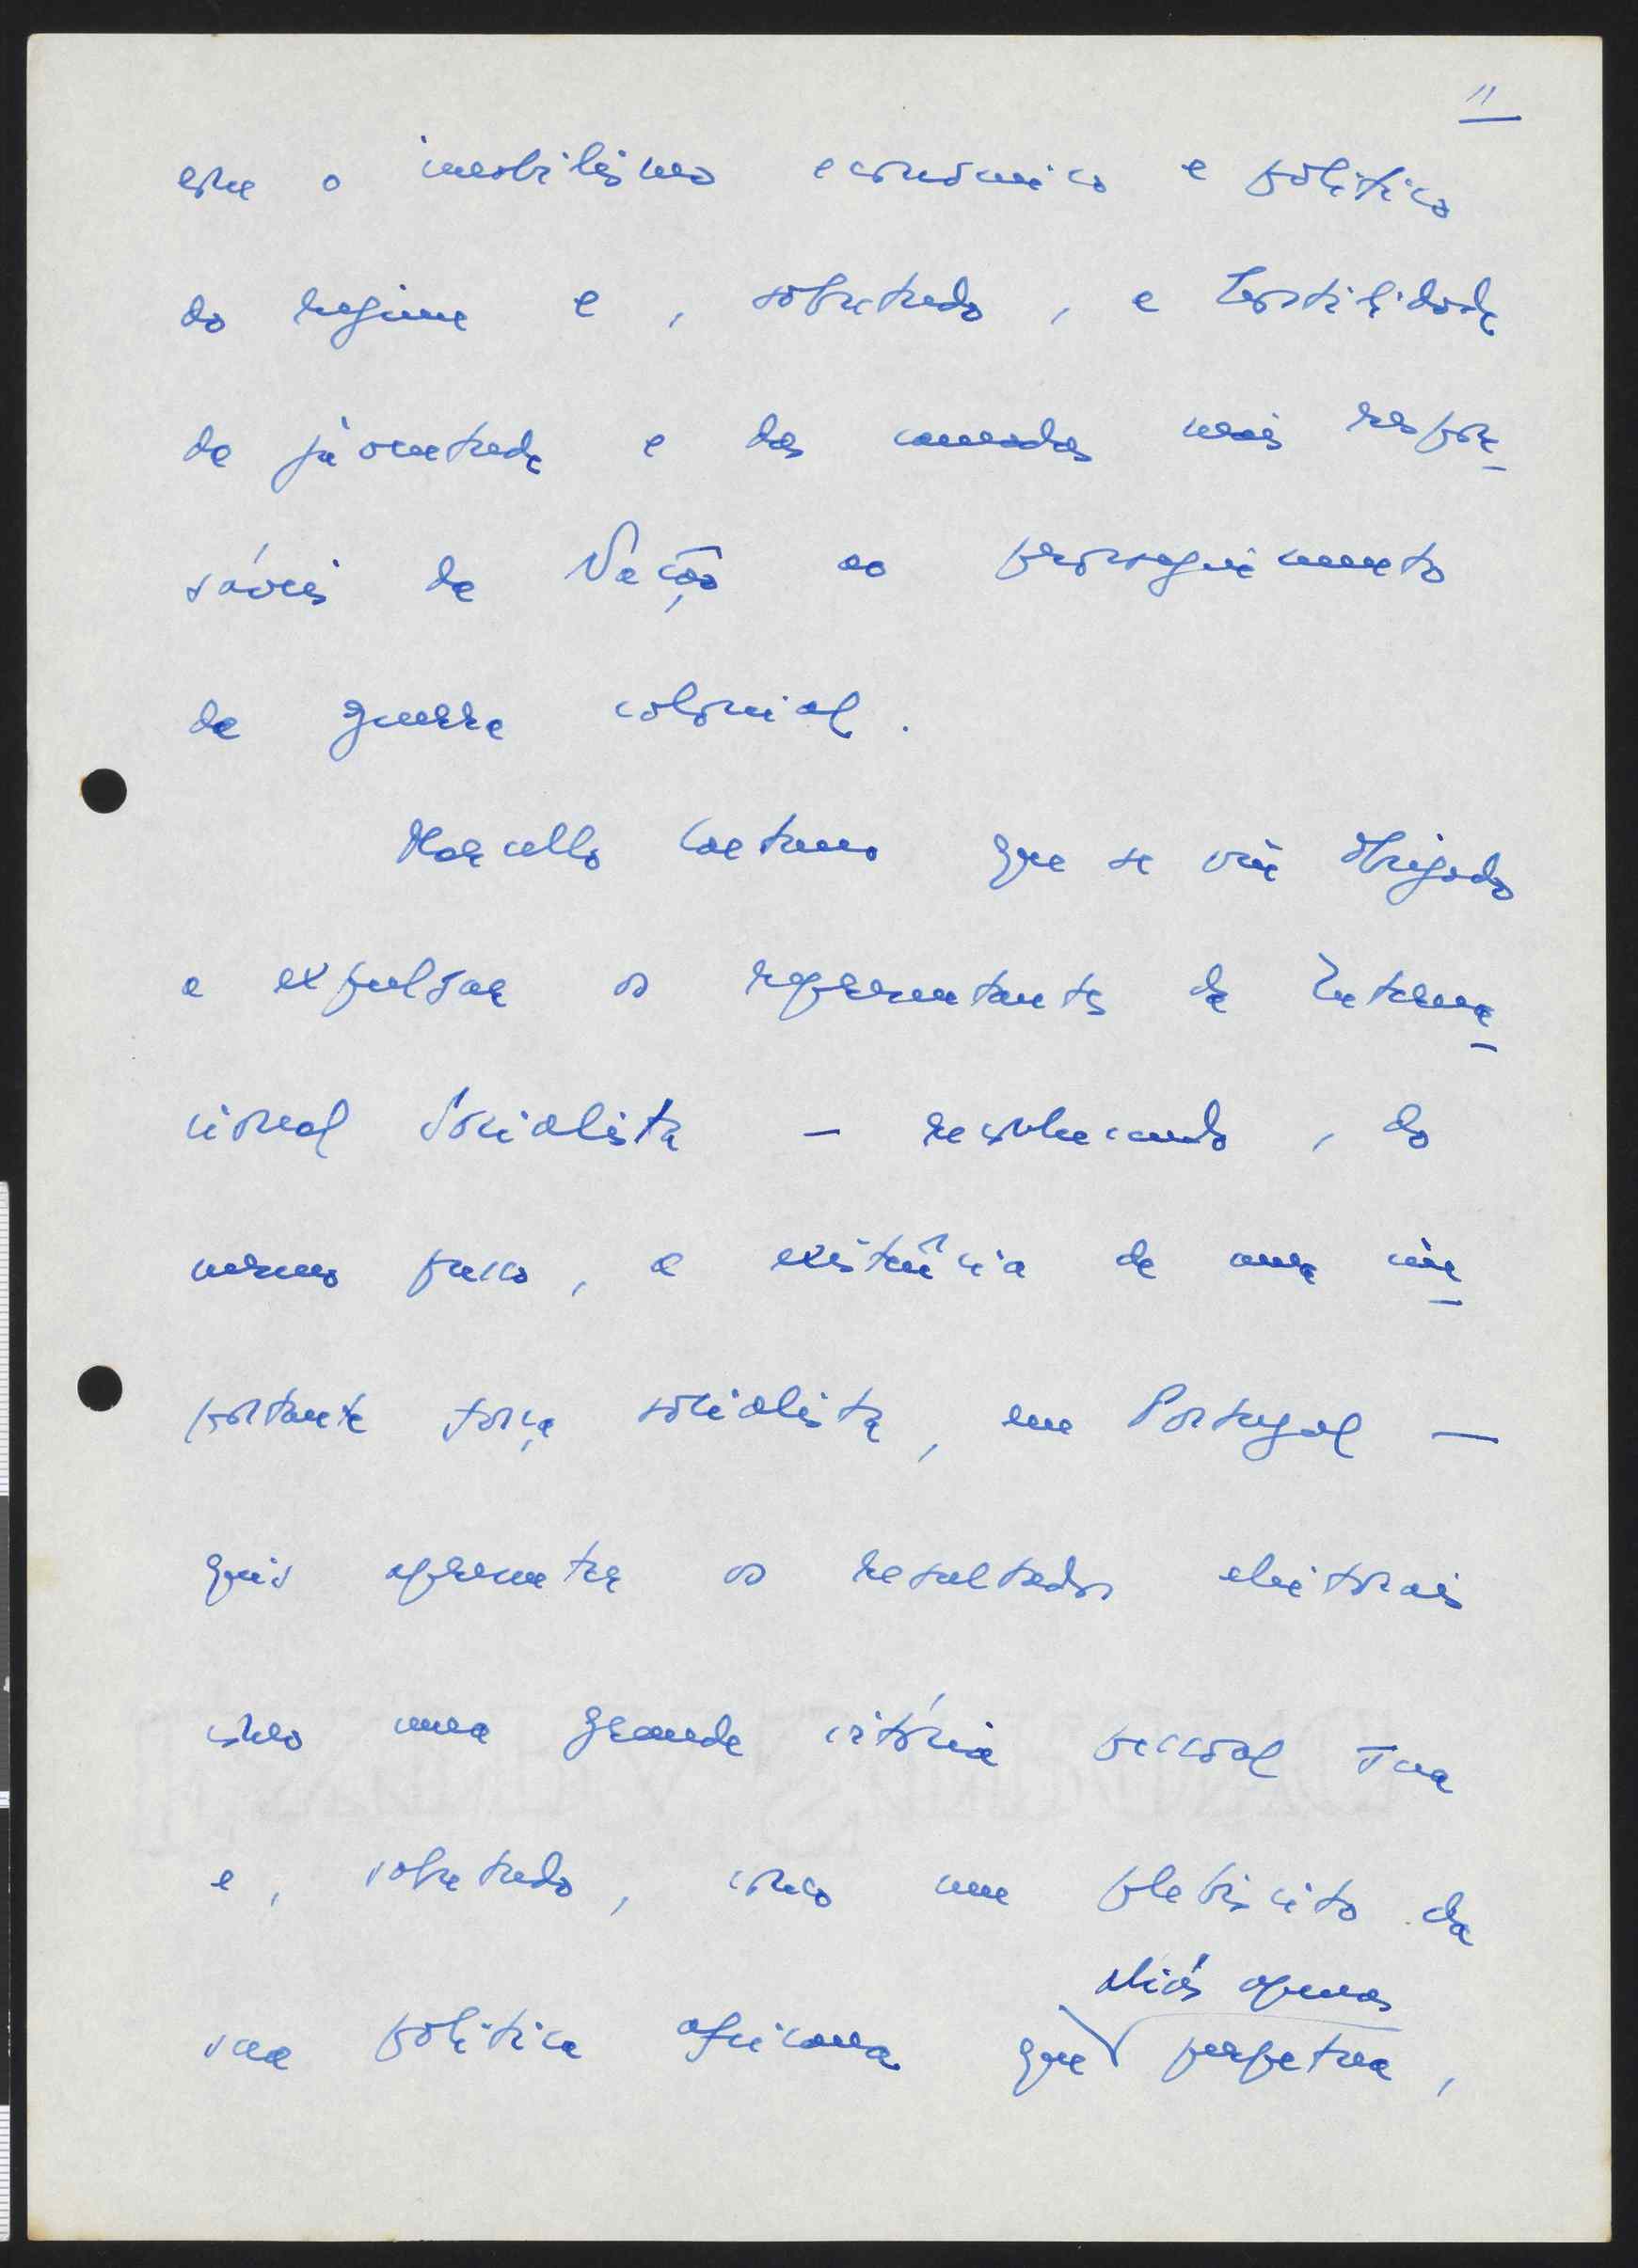 11
com o imobilismo económico e político
do regime e, sobretudo, a hostilidade
da juventude e das camadas mais respon-
sáveis da Nação ao prosseguimento
da guerra colonial.
Marcello Caetano que se viu obrigado
a expulsar os representantes da Interna-
cional Socialista — reconhecendo, do
mesmo passo, a existência de uma im-
portante força socialista, em Portugal —
quis apresentar os resultados eleitorais
como uma grande vitória pessoal sua
e, sobretudo, como um plebiscito da
aliás apenas
sua política africana que perpetua,